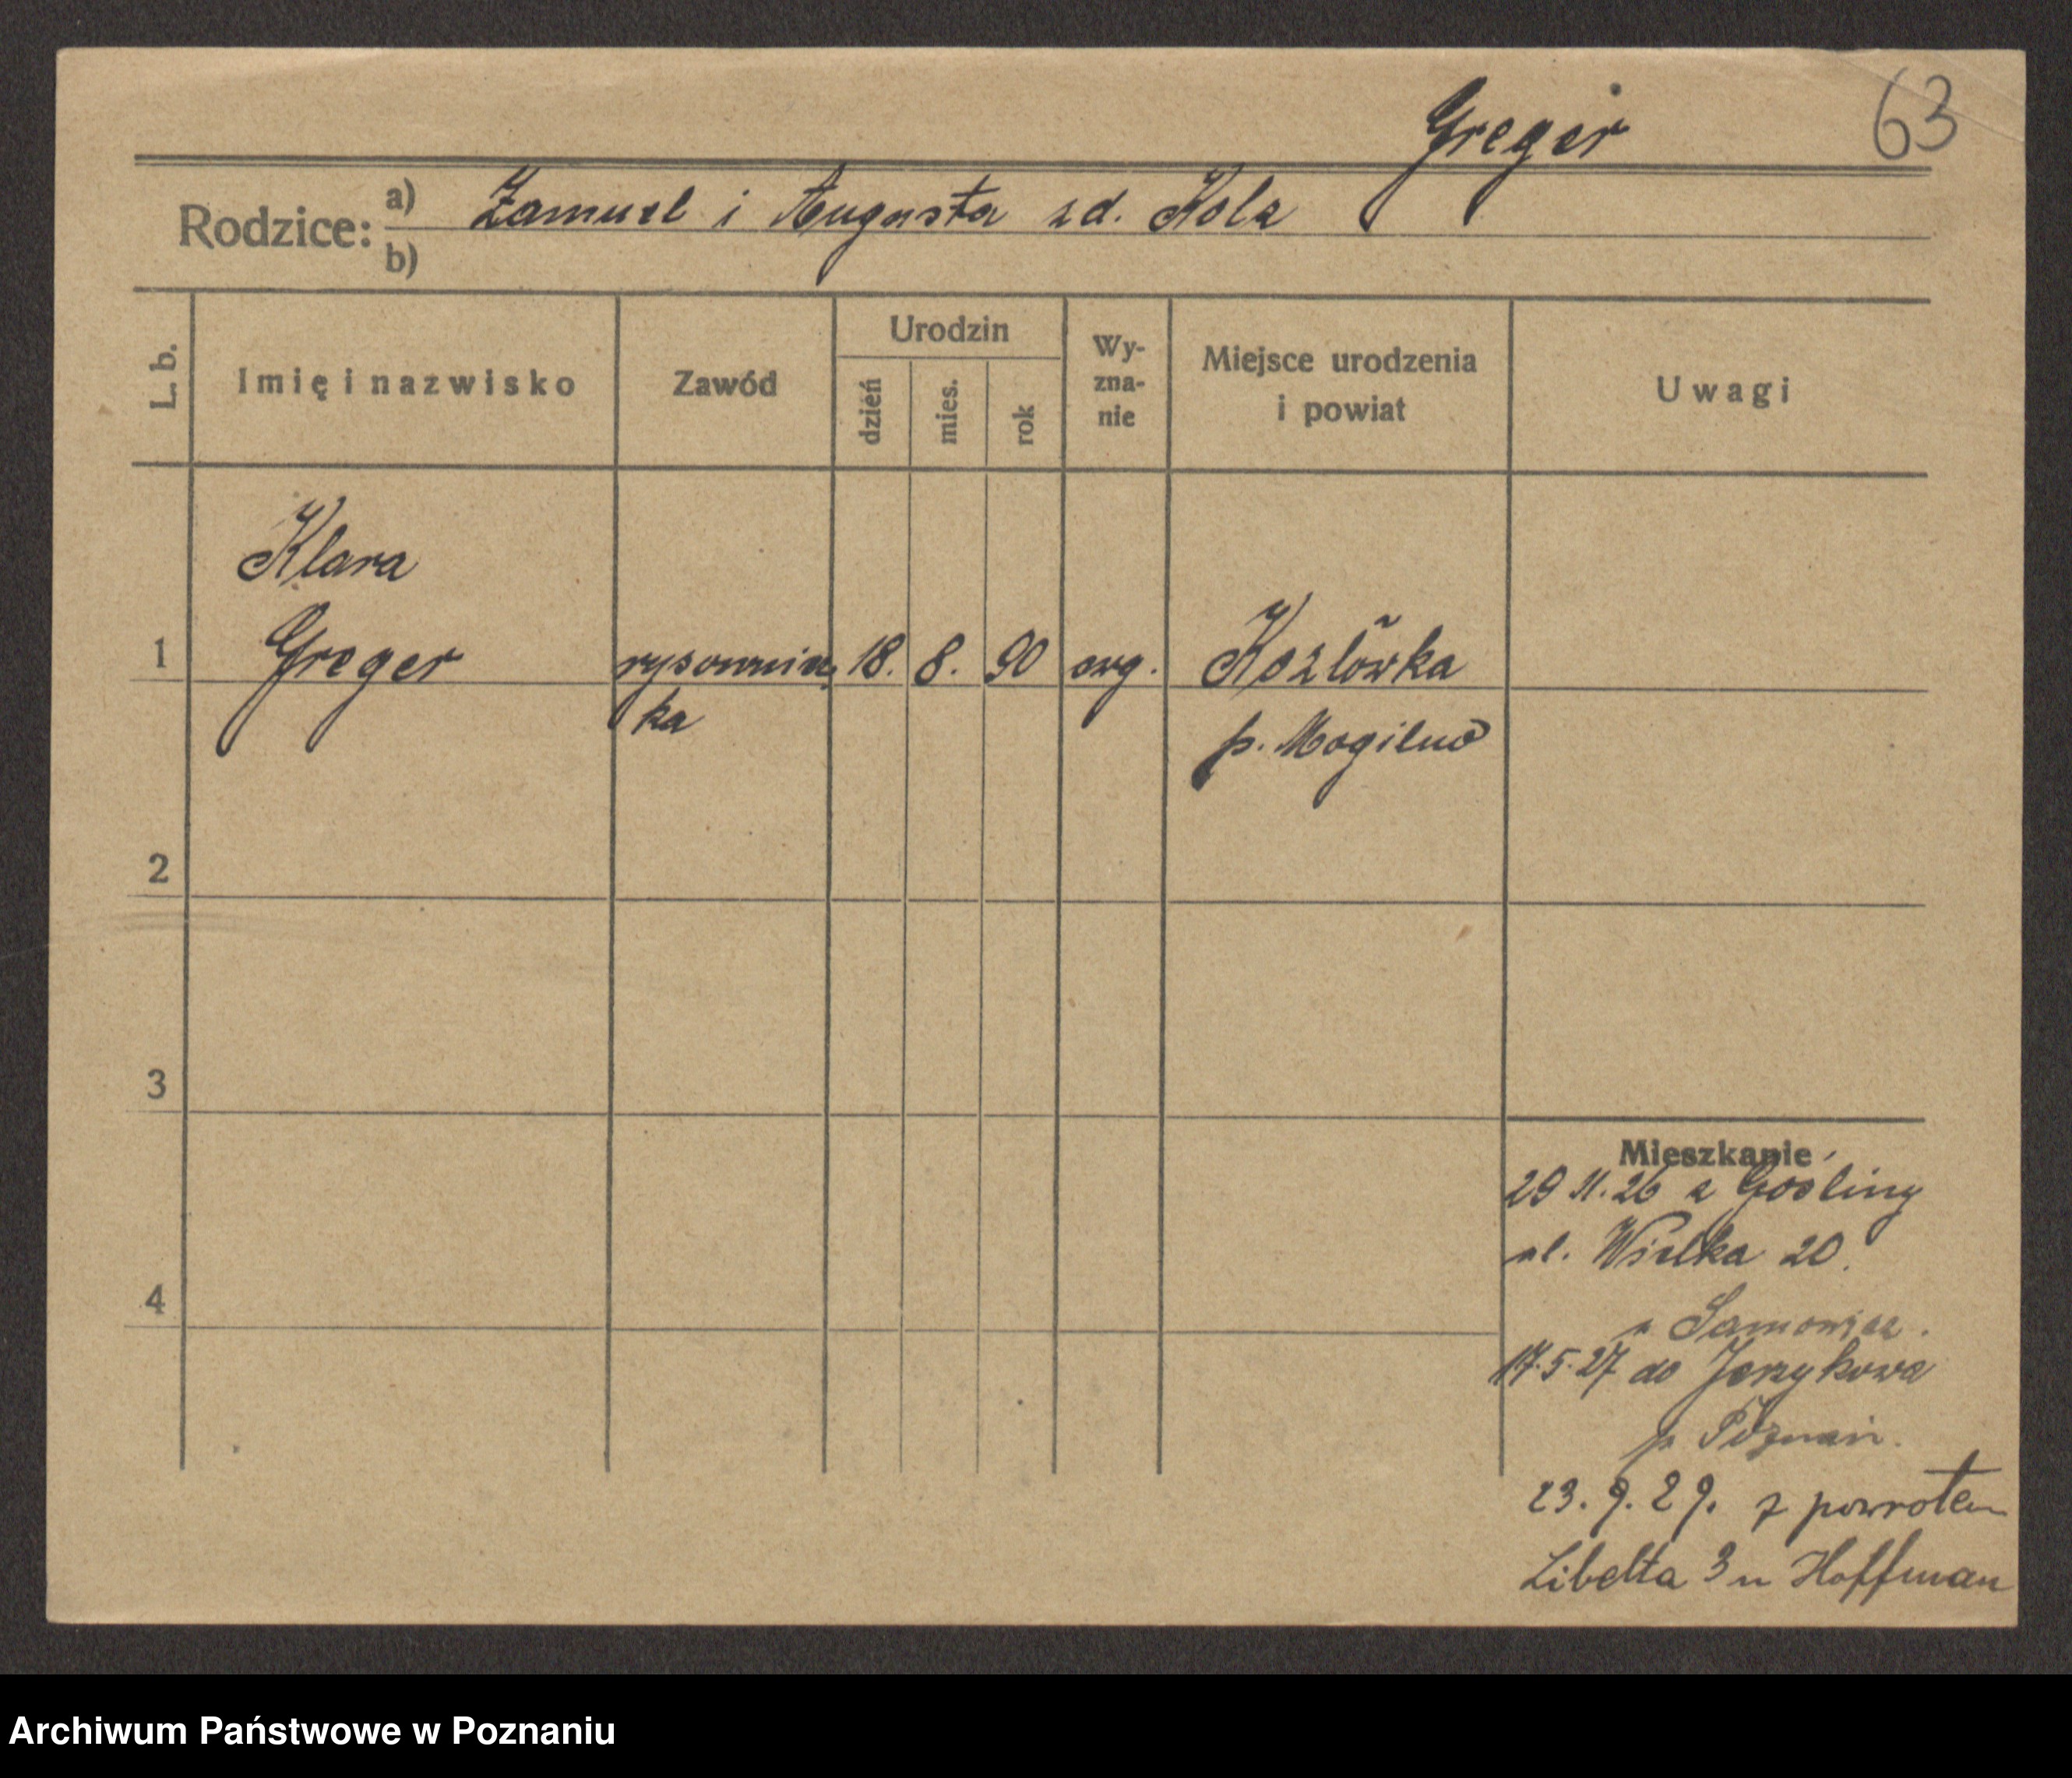 Greger
63
Rodzice: a) Zamuel i Augusta zd. Kolz
b)
L. b.
Imię i nazwisko
Zawód
Urodzin
dzień
mies.
rok
Wy-
zna-
nie
Miejsce urodzenia
i powiat
Uwagi
Klara
1 Greger rysownicz 18. 8. 90 ewg. Kozlówka
ka p. Mogilno
2
3
4
Mieszkanie
29 11. 26 z Gośliny
ul. Wielka 20.
17.5.27 do Jerzykowa
p Poznań.
23. 9. 29. z powrotem
Libelta 3 u Hoffman
Archiwum Państwowe w Poznaniu